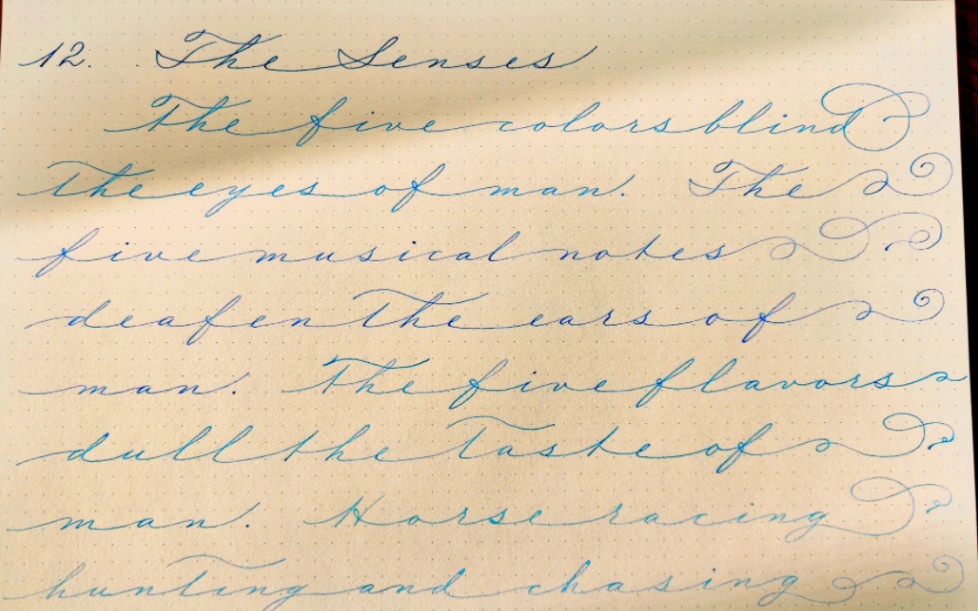 12. The Senses
The five colors blind
the eyes of man. The
five musical notes
deafen the ears of
man. The five flavors
dull the taste of
man. Horse racing
hunting and chasing